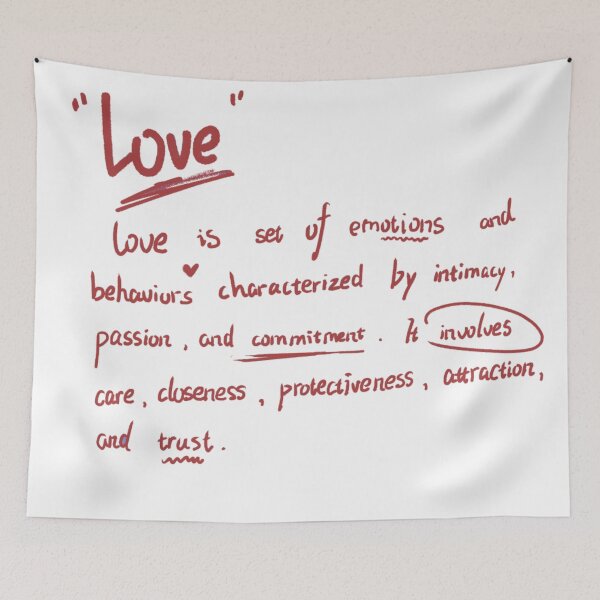 "Love"
love is set of emotions and
behaviors characterized by intimacy,
passion, and commitment. It involves
care, closeness, protectiveness, attraction,
and trust.